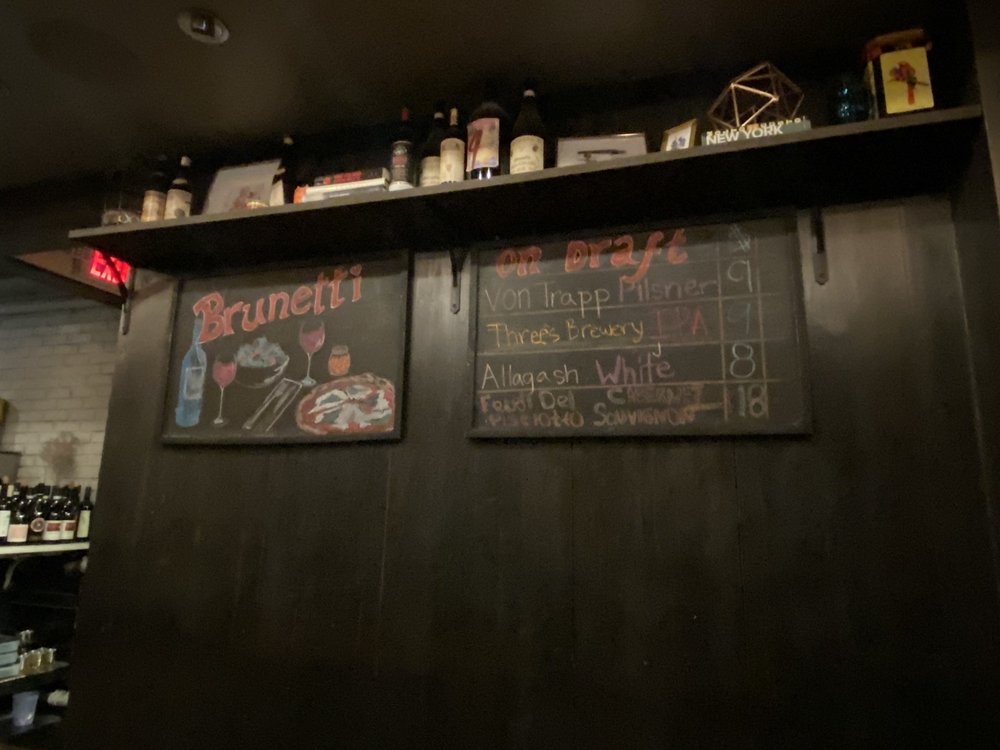 NEW YORK
EXIT
Brunetti
On Draft $
Von Trapp Pilsner 9
Three's Brewery IPA 9
Allagash White 8
Del CABERNET
SOUVIGNON 18